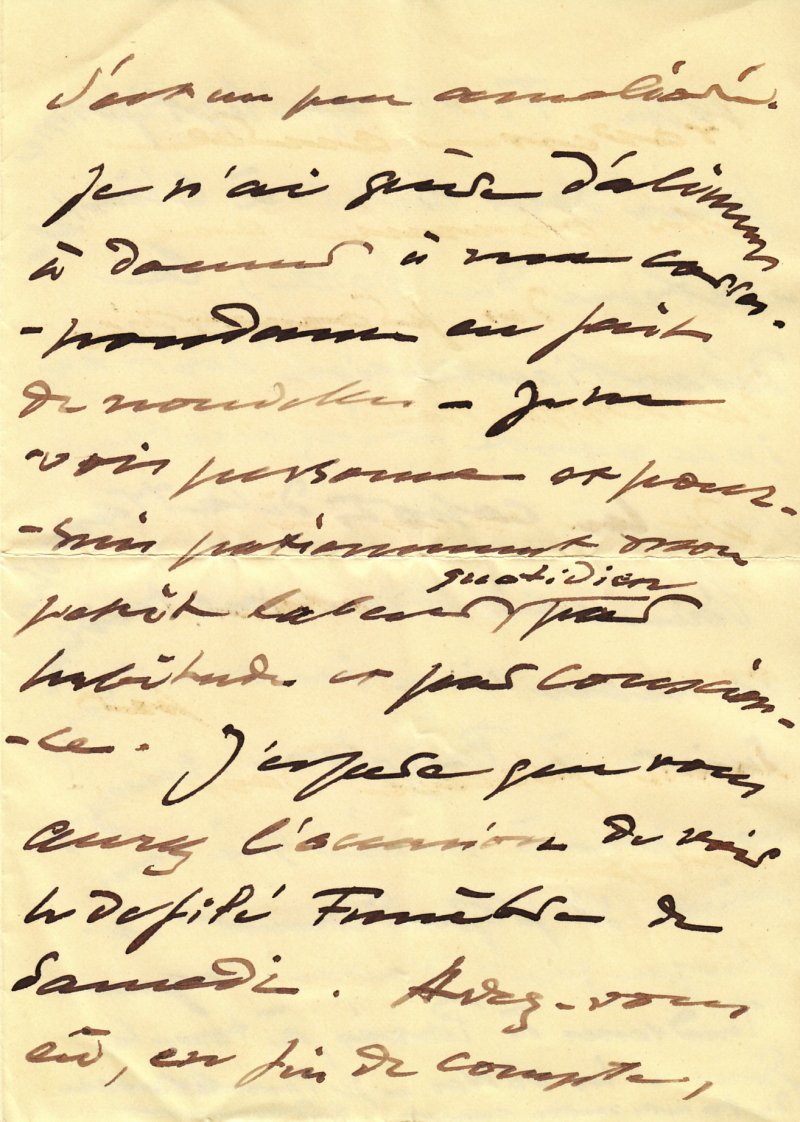 s'est un peu amélioré.
Je n'ai guère d'aliments
à donner à ma corres-
-pondance en fait
de nouvelles - Je ne
vois personne et pour-
-suis patiemment mon
quotidien
petit labeur par
habitude et par conscien-
-ce. J'espère que vous
aurez l'occasion de voir
le défilé Funèbre de
samedi. Avez-vous
eû, en fin de compte,